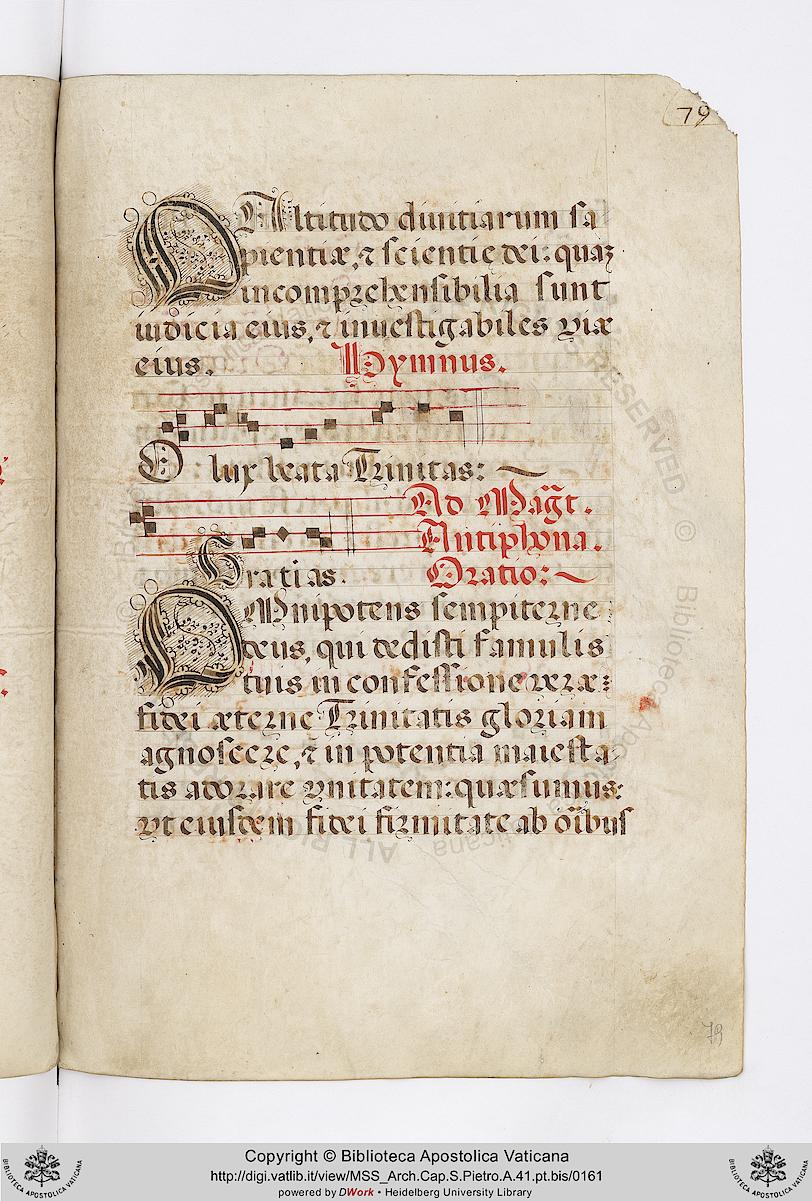 79
O Altitudo diuitiarum sa
pientiæ, ⁊ scientie dei: quaꝫ
incomprehensibilia sunt
iudicia eius, ⁊ inuestigabiles viæ
eius. Hymnus.
O lux beata Trinitas:
Ad Mag̃t.
Antiphona.
Gratias. Oratio:
OMnipotens sempiterne
deus, qui dedisti famulis
tuis in confessione veræ:
fidei æterne Trinitatis gloriam
agnoscere, ⁊ in potentia maiesta
tis adorare vnitatem: quæsumus:
vt eiusdem fidei firmitate ab oĩbus
79
Copyright © Biblioteca Apostolica Vaticana
http://digi.vatlib.it/view/MSS_Arch.Cap.S.Pietro.A.41.pt.bis/0161
powered by DWork • Heidelberg University Library